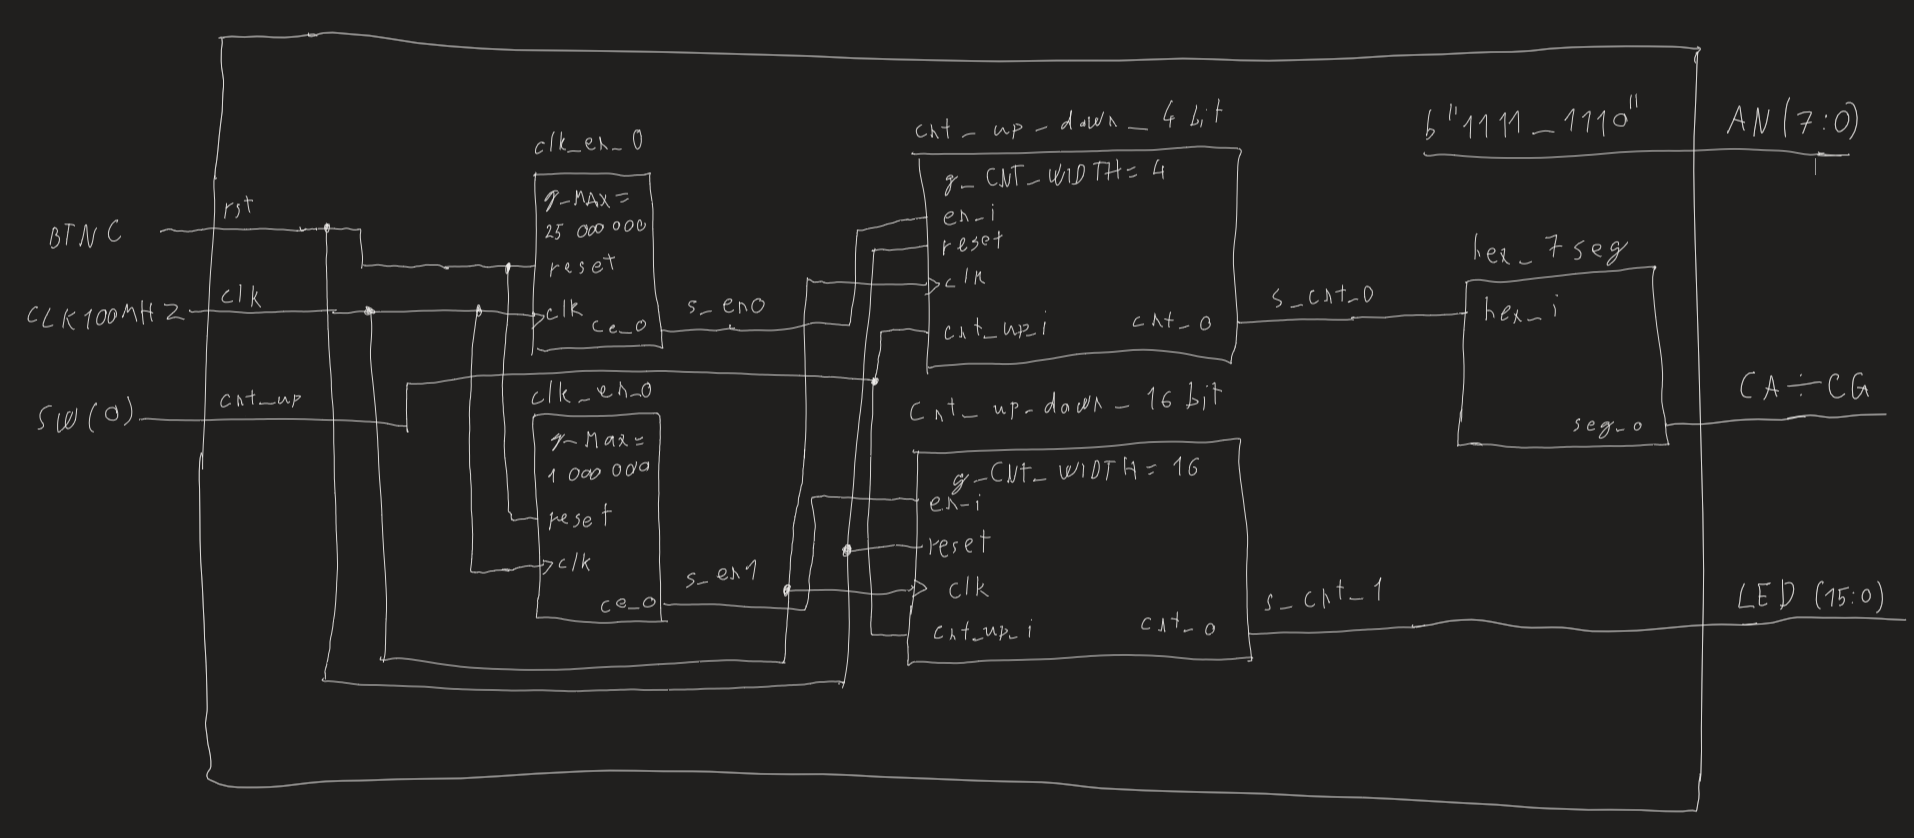 BTNC
CLK100MHZ
SW(0)
rst
clk
cnt_up
clk_en_0
g_MAX=
25 000 000
reset
clk
ce_o
s_en0
clk_en_0
g_Max=
1 000 000
reset
clk
ce_o
s_en1
cnt_up_down_4bit
g_CNT_WIDTH=4
en_i
reset
clk
cnt_up_i
cnt_o
s_cnt_0
cnt_up_down_16bit
g_CNt_WIDTH=16
en_i
reset
clk
cnt_up_i
cnt_o
s_cnt_1
hex_7seg
hex_i
seg_o
b"1111_1110"
AN(7:0)
CA÷CG
LED(15:0)